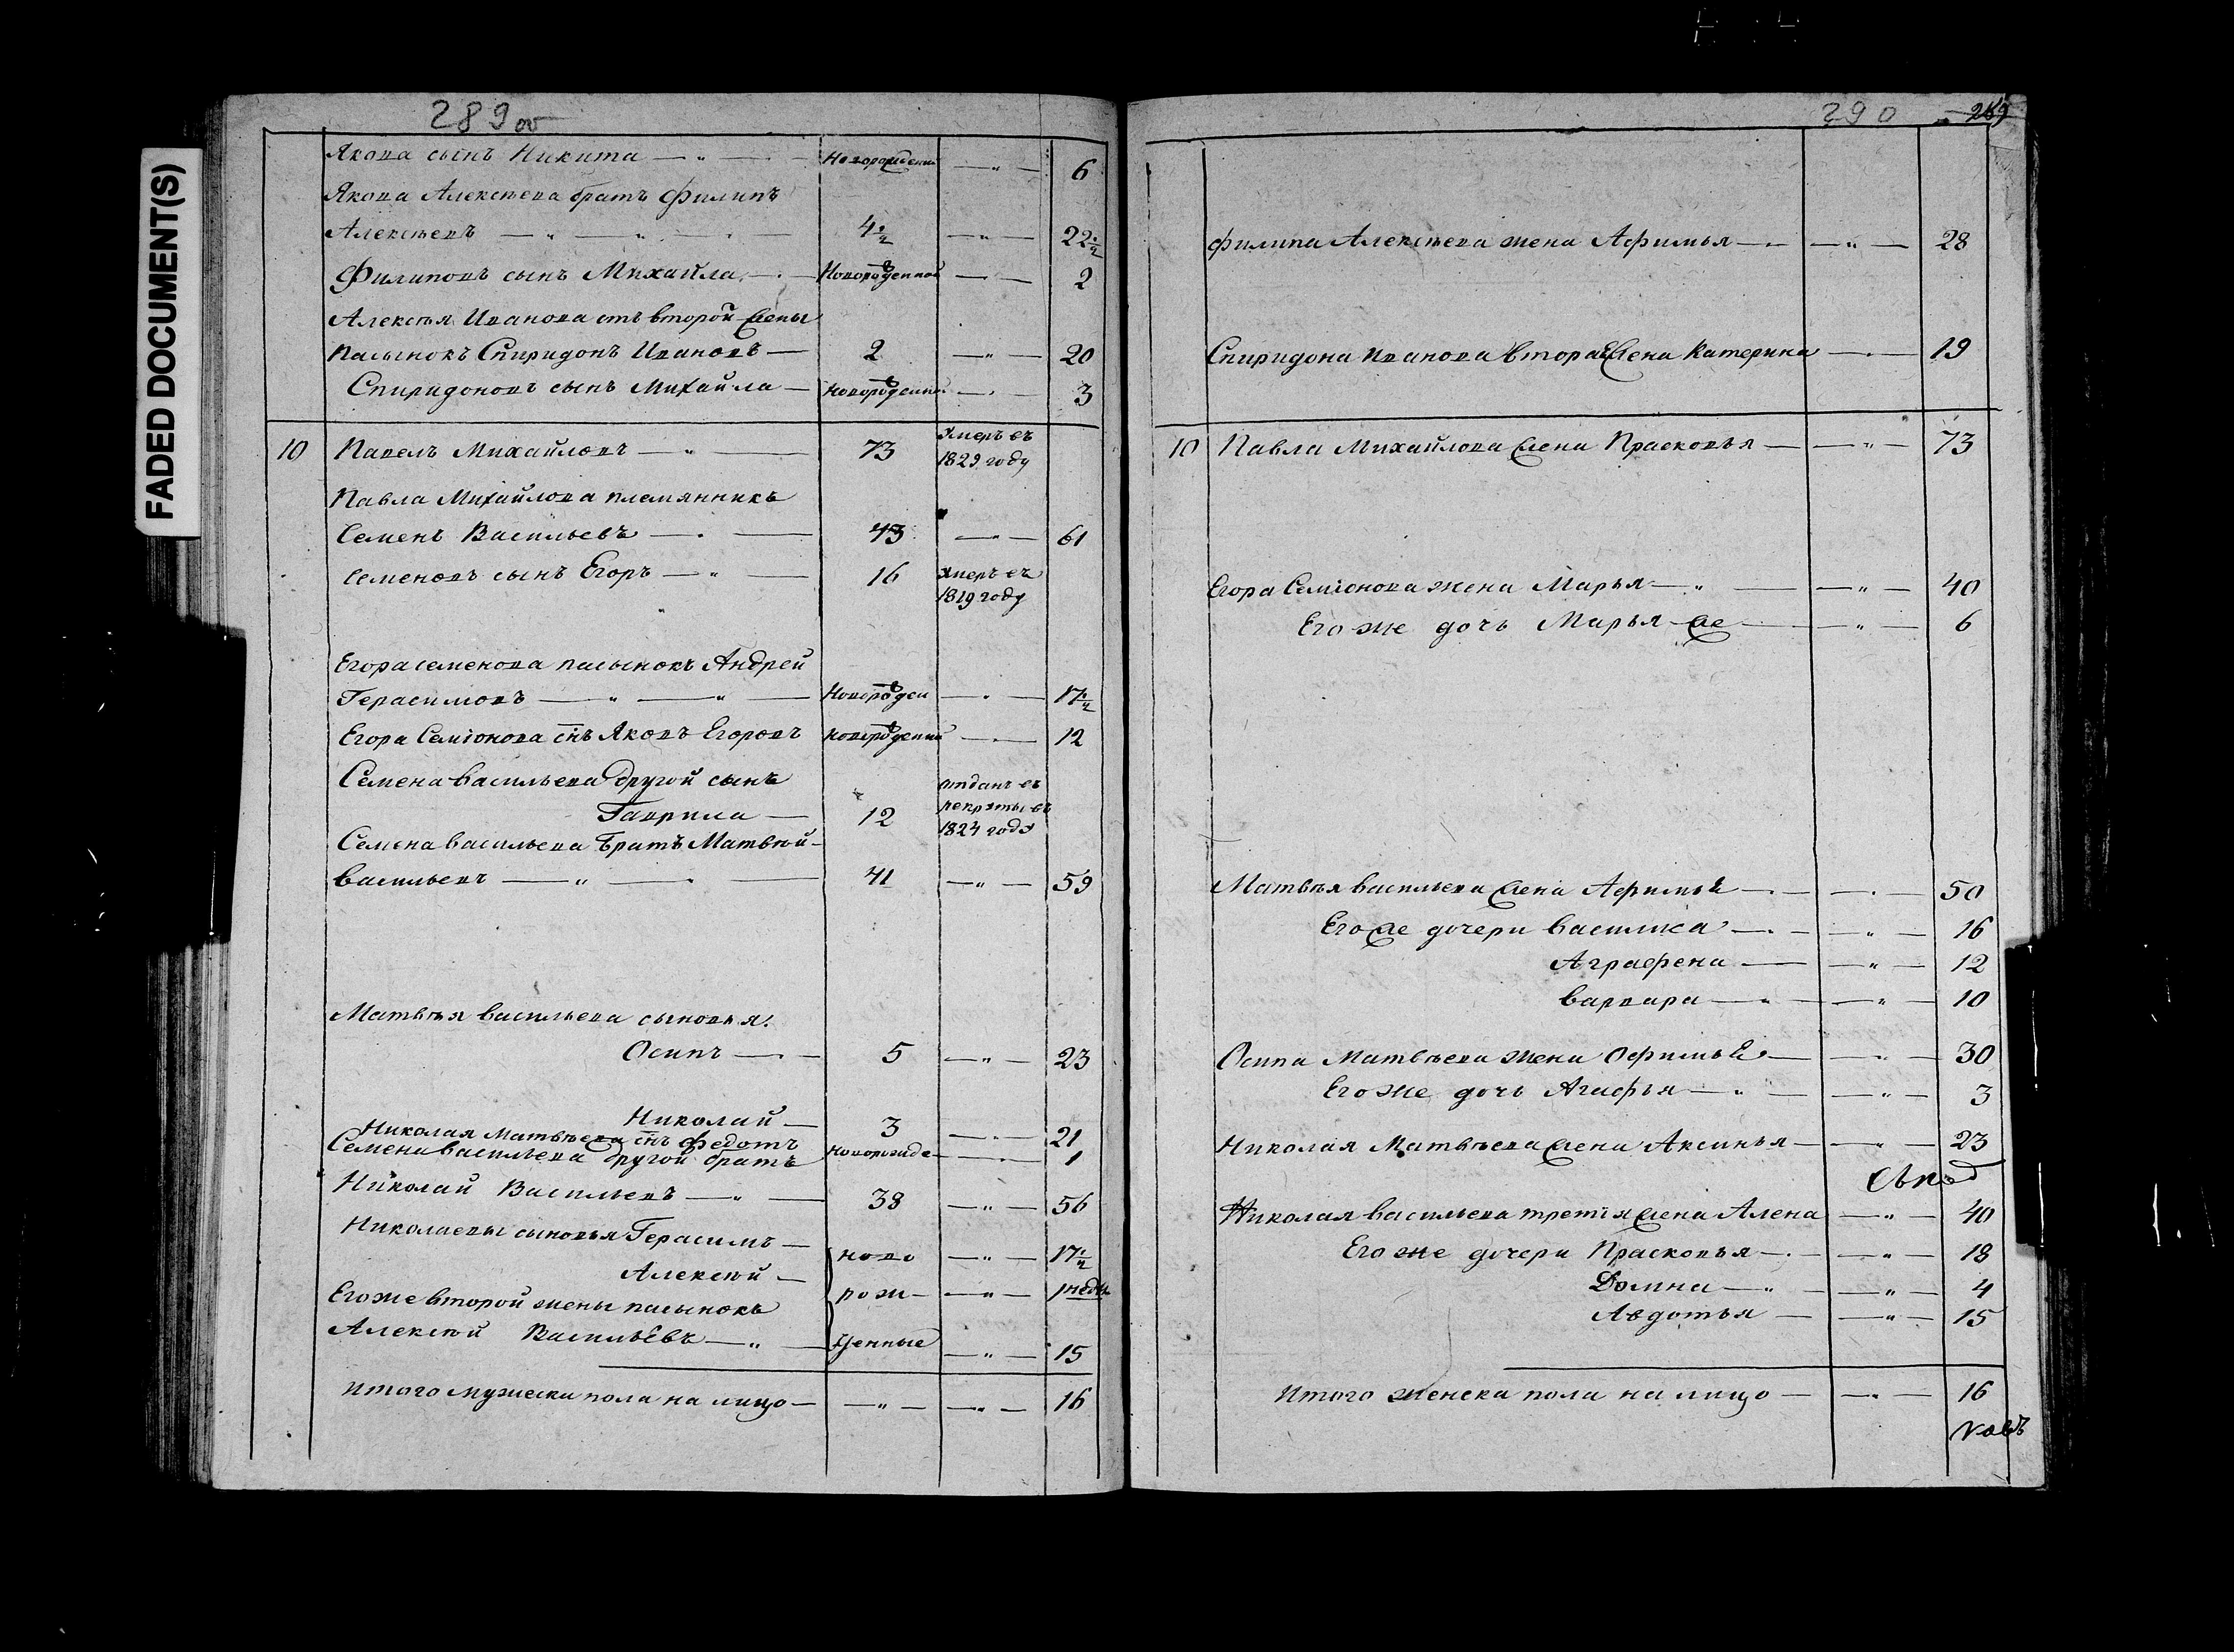 FADED DOCUMENT(S)
289 об
Якова сынъ Никита — " — Новорожденн — " — 6
Якова Алексѣева братъ Филипъ
Алексѣевъ — " — " — 4½ — " — 22½
Филиповъ сынъ Михайла — Новорожденной — " — 2
Алексѣя Иванова отъ второй жены
пасынокъ Спиридонъ Ивановъ — 2 — " — 20
Спиридоновъ сынъ Михайла — Новорожденной — " — 3
10 Павелъ Михайловъ — " — 73 умеръ въ 1829 году
Павла Михайлова племянникъ
Семенъ Васильевъ — 43 — " — 61
Семеновъ сынъ Егоръ — " — 16 умеръ въ 1819 году
Егора семенова пасынокъ Андрей
Герасимовъ — " — " — Новорожден — " — 17½
Егора Семіонова снъ Яковъ Егоровъ новорожденный — " — 12
Семена васильева другой сынъ
Гаврила — 12 отданъ въ рекруты въ 1824 году
Семена васильева братъ Матвѣй
васильевъ — " — 41 — " — 59
Матвѣя васильева сыновья:
Осипъ — 5 — " — 23
Николай — 3 — " — 21
Николая Матвѣева снъ Федотъ новорожде — " — 1
Семена васильева другой братъ
Николай Васильевъ — " — 38 — " — 56
Николаевы сыновья Герасимъ — ново — " — 17½
Алексѣй — рож — " — 1 недѣл
Его же второй жены пасынокъ
Алексѣй Васильевъ — " — денные — " — 15
Итого мужеска пола на лицо — " — " — 16
290 289
Филипа Алексѣева жена Афимья — " — 28
Спиридона Иванова вторая жена Катерина — " — 19
10 Павла Михайлова жена Прасковья — " — 73
Егора Семіонова жена Марья — " — " — 40
Его же дочь Марья же — " — 6
Матвѣя васильева жена Афимья — " — 50
Его же дочери василиса — " — 16
Аграфена — " — 12
варвара — " — 10
Осипа Матвѣева жена Офимья — " — 30
Его же дочь Агафья — " — 3
Николая Матвѣева жена Аксинья — " — 23
Николая васильева третія жена Алена — " — 40
Его же дочери Прасковья — " — 18
Домна — " — 4
Авдотья — " — 15
Итого женска пола на лицо — " — 16